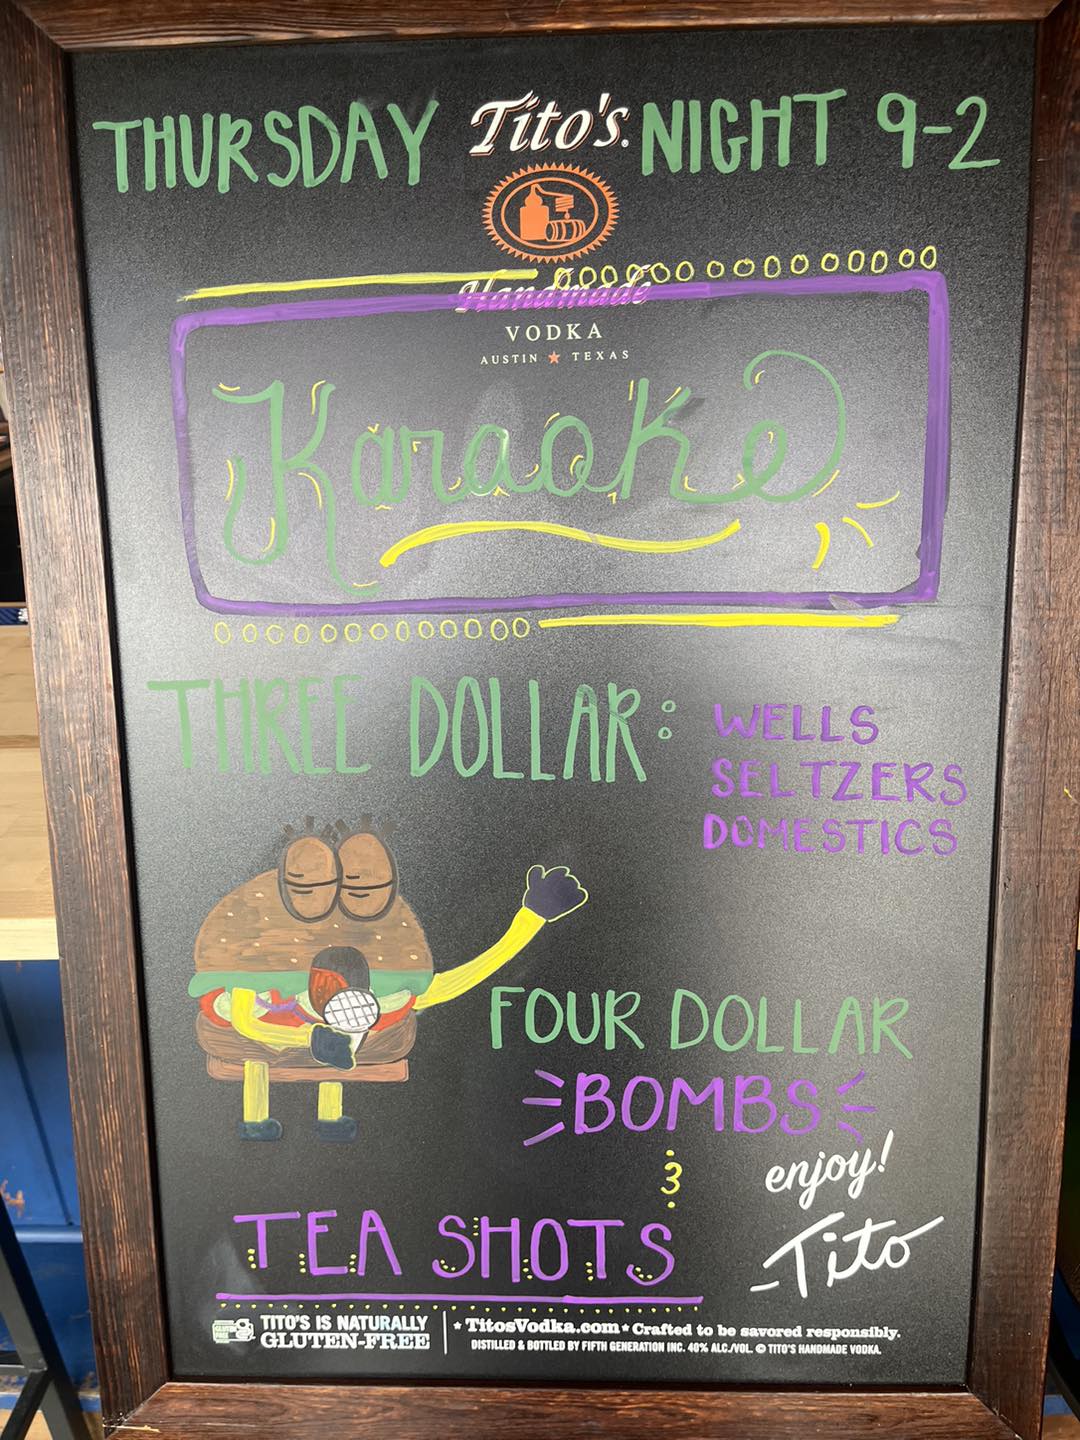 THURSDAY Tito's. NIGHT 9-2
Handmade
VODKA
AUSTIN ★ TEXAS
Karaoke
THREE DOLLAR:
WELLS
SELTZERS
DOMESTICS
FOUR DOLLAR
BOMBS
&
TEA SHOTS
enjoy!
-Tito
TITO'S IS NATURALLY
GLUTEN-FREE
★ TitosVodka.com ★ Crafted to be savored responsibly.
DISTILLED & BOTTLED BY FIFTH GENERATION INC. 40% ALC./VOL. © TITO'S HANDMADE VODKA.